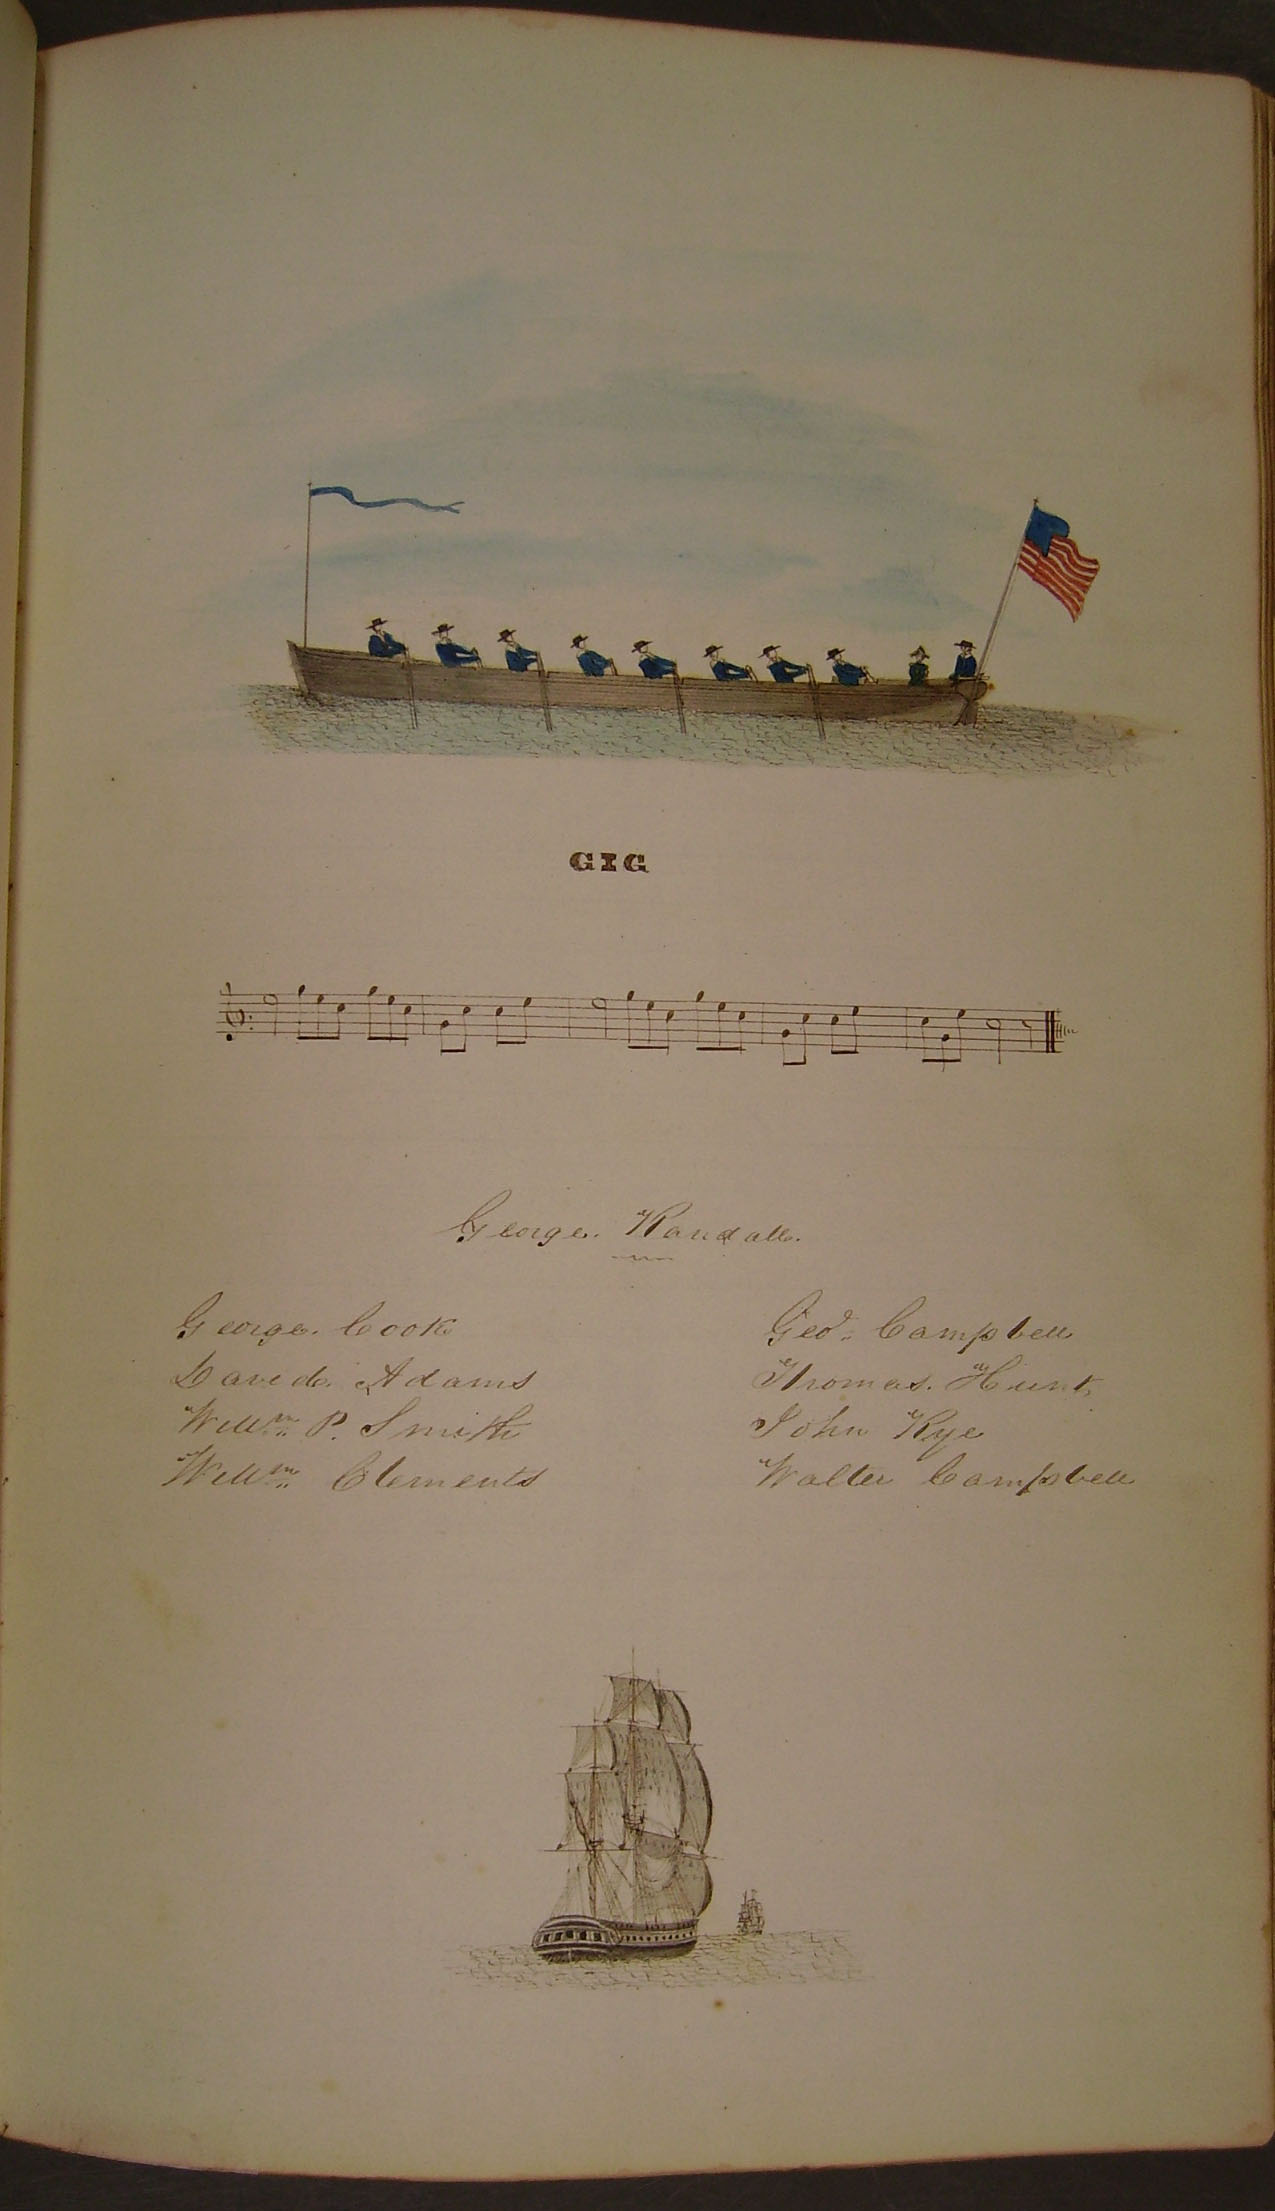 GIG
George. Randall.
George. Cook
David. Adams
Willm P. Smith
Willm Clements
Geo. Campbell
Thomas. Hunt
John Rye
Walter Campbell